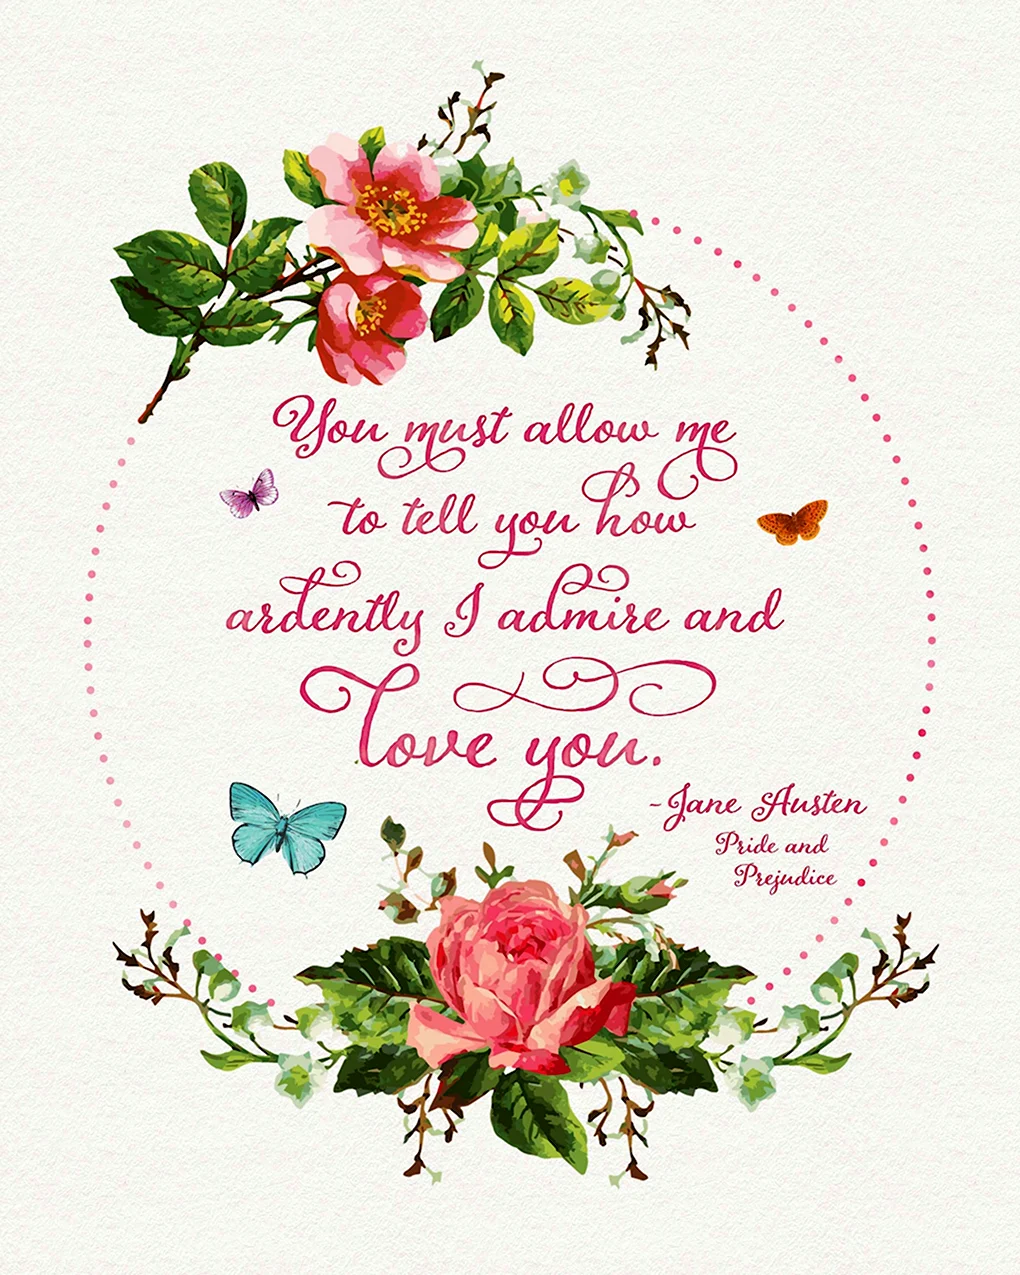 You must allow me
to tell you how
ardently I admire and
love you.
-Jane Austen
Pride and
Prejudice